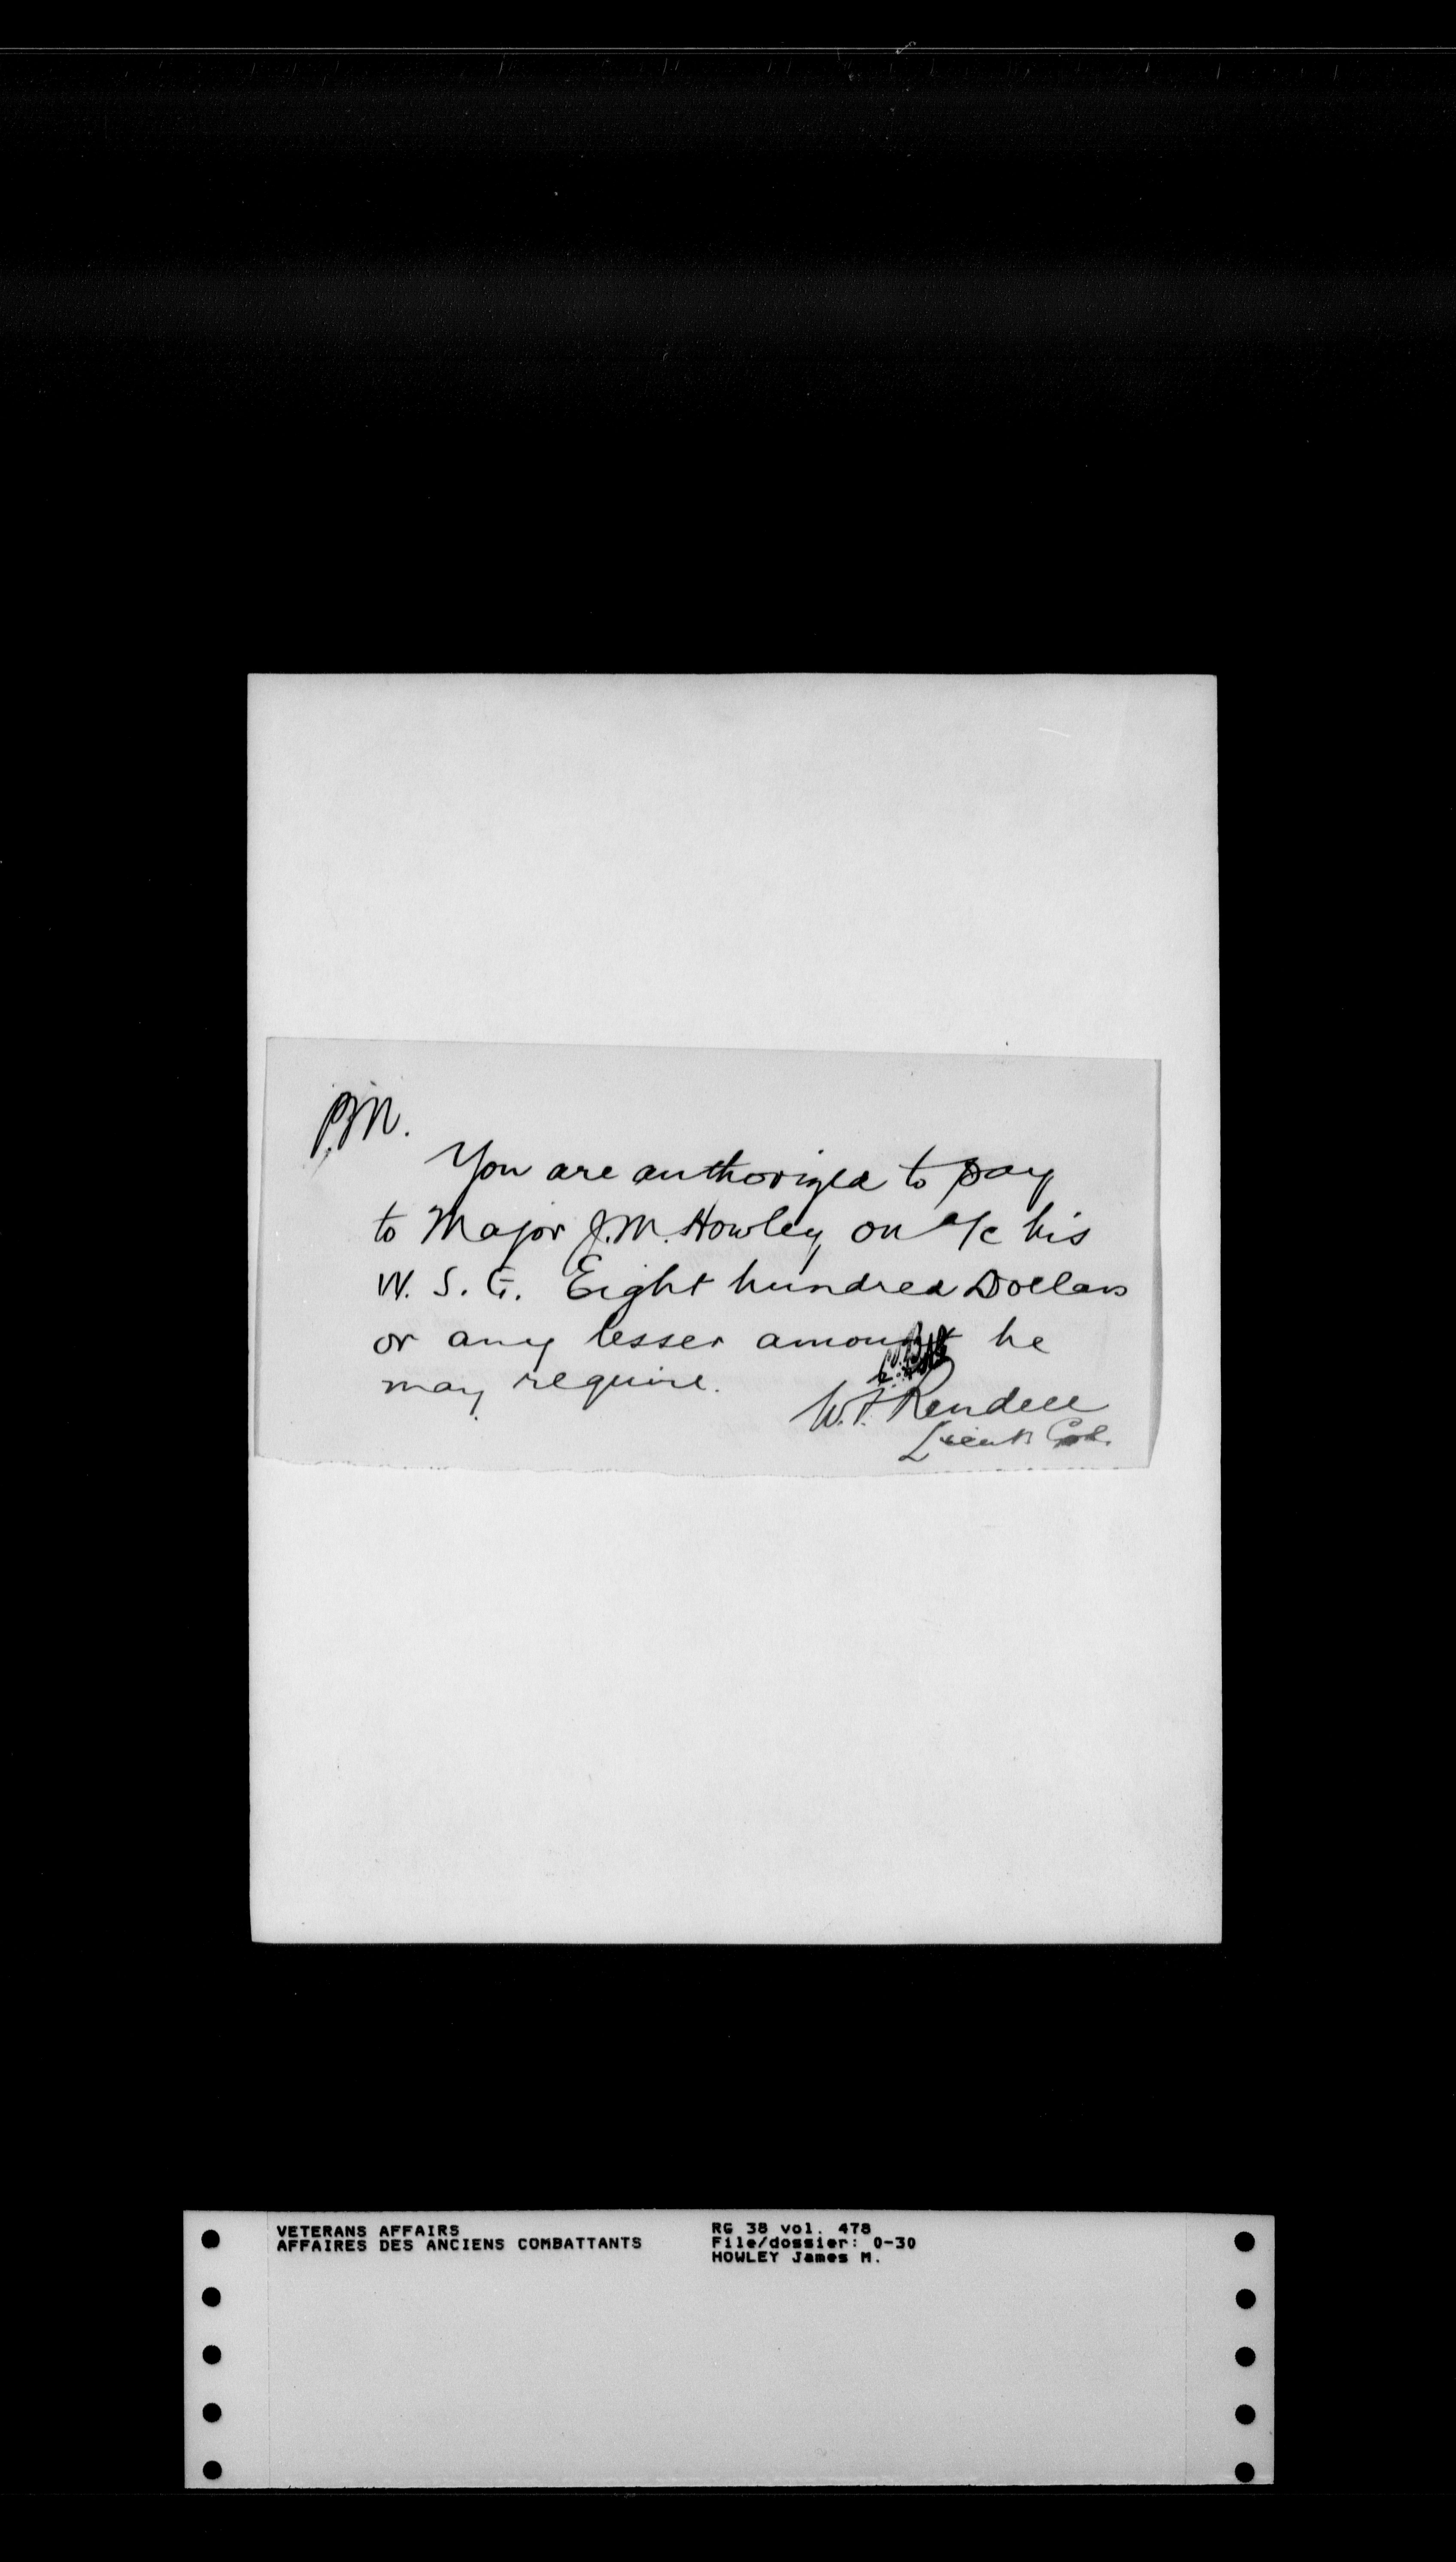 P.M.
You are authorized to pay
to Major J.M. Howley on a/c his
W. S. G. Eight hundred Dollars
or any lesser amount he
may require.
W.F. Rendell
Lieut Col.
VETERANS AFFAIRS
AFFAIRES DES ANCIENS COMBATTANTS
RG 38 vol. 478
File/dossier: 0-30
HOWLEY James M.